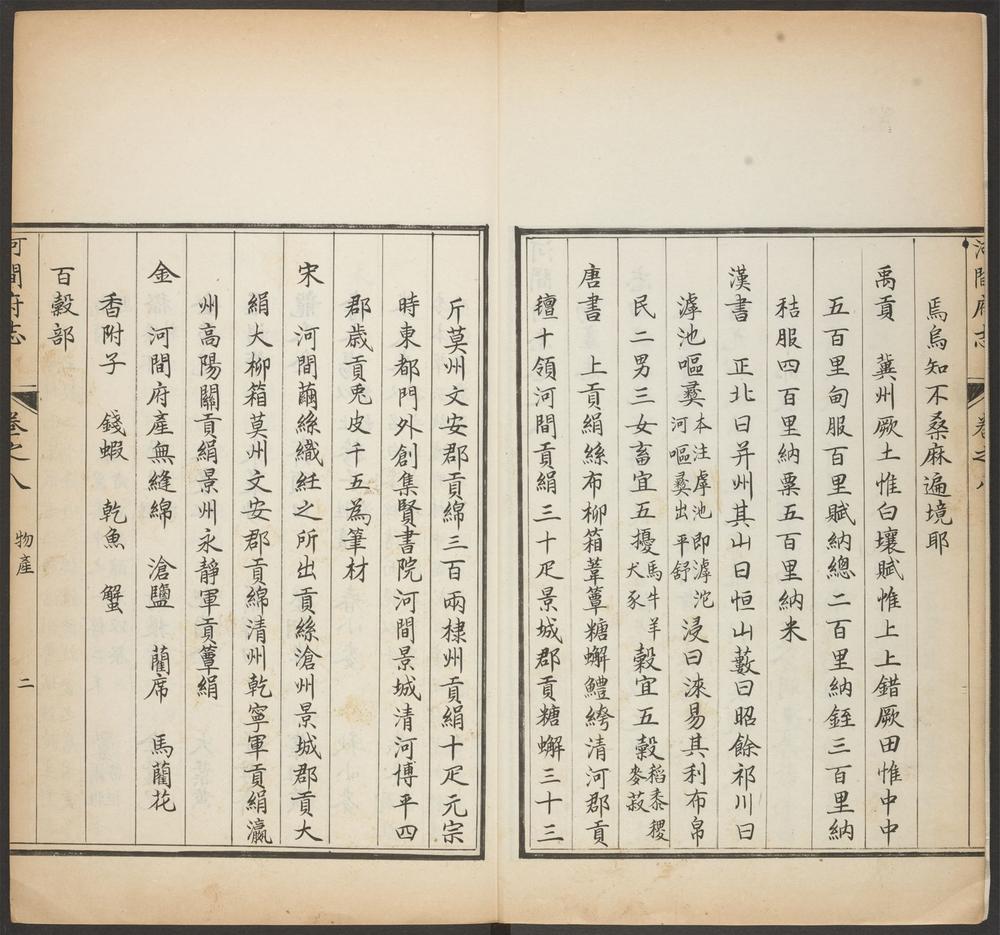 河間府志
卷之八
焉烏知不桑麻遍境耶
禹貢　冀州厥土惟白壤賦惟上上錯厥田惟中中
五百里甸服百里賦納總二百里納銍三百里納
秸服四百里納粟五百里納米
漢書　正北曰并州其山曰恒山藪曰昭餘祁川曰
滹池嘔彞本注虖池即滹沱河嘔彞出平舒浸曰淶易其利布帛
民二男三女畜宜五擾馬牛羊犬豕穀宜五穀稻黍稷麥菽
唐書　上貢絹絲布柳箱葦簟糖蠏鱧䱟清河郡貢
氊十領河間貢絹三十疋景城郡貢糖蠏三十三
斤莫州文安郡貢綿三百兩棣州貢絹十疋元宗
時東都門外創集賢書院河間景城清河博平四
郡歲貢兎皮千五為筆材
宋　河間繭絲織紝之所出貢絲滄州景城郡貢大
絹大柳箱莫州文安郡貢綿清州乾寧軍貢絹瀛
州高陽關貢絹景州永靜軍貢簟絹
金　河間府產無縫綿　滄鹽　藺席　馬藺花
香附子　錢蝦　乾魚　蟹
百穀部
河間府志
卷之八　物產　二